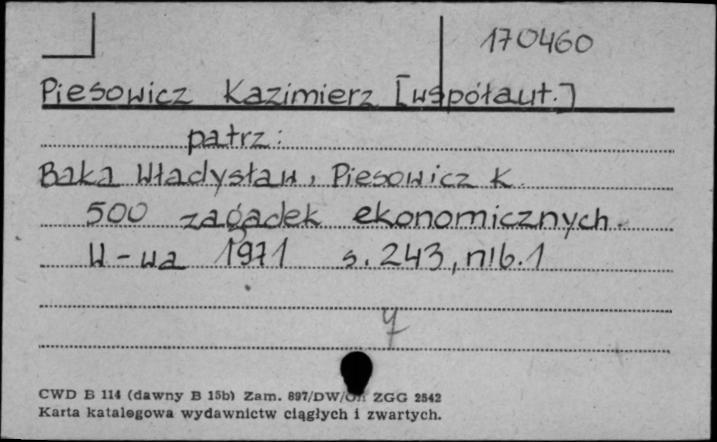 170460
Piesowicz Kazimierz [współaut.]
patrz:
Baka Władysław, Piesowicz K.
500 zagadek ekonomicznych.
W-wa 1971 s. 243, nlb. 1
CWD B 114 (dawny B 15b) Zam. 897/DW/ ZGG 2542
Karta katalogowa wydawnictw ciągłych i zwartych.